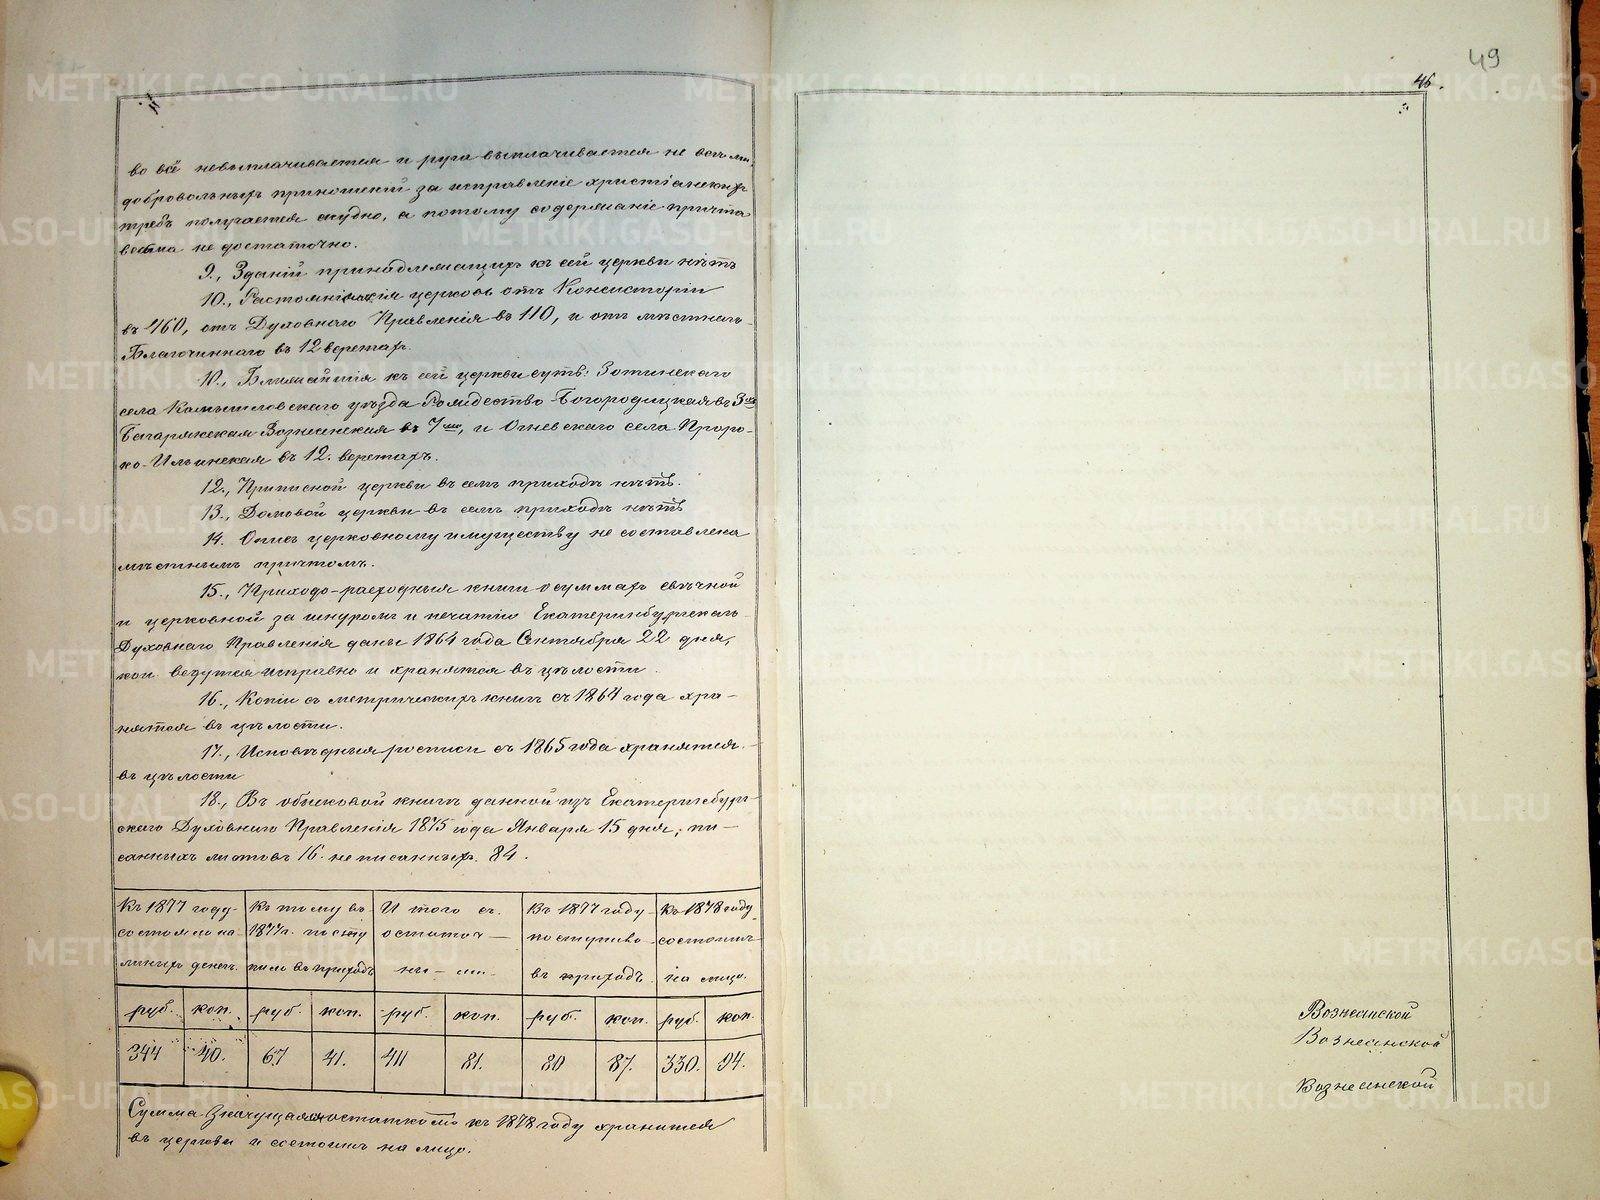 во всё невыплачивается и руга выплачивается не вся
добровольныхъ приношеній за исправленіе христіанскихъ
требъ получается скудно, а потому содержаніе причта
весьма не достаточно.
9., Зданій принадлежащихъ къ сей церкви нѣтъ
10., церковь отъ Консисторіи
въ 460, отъ Духовнаго Правленія въ 110, и отъ мѣстнаго
Благочиннаго въ 12 верстахъ.
11., Ближайшія къ сей церкви суть: Зотинскаго
села Камышловскаго уѣзда Рождество-Богородицкая въ 3хъ
Багарякская Вознесенская въ 7ми, и Огневскаго села Проро-
ко-Ильинская въ 12. верстахъ.
12., Приписной церкви въ семъ приходѣ нѣтъ.
13., Домовой церкви въ семъ приходѣ нѣтъ
14. Опись церковному имуществу не составлена
мѣстнымъ причтомъ.
15., Приходо-расходныя книги о суммахъ свѣчной
и церковной за шнуромъ и печатію Екатеринбургскаго
Духовнаго Правленія даны 1864 года Сентября 22 дня,
кои ведутся исправно и хранятся въ цѣлости.
16., Копіи съ метрическихъ книгъ съ 1864 года хра-
нятся въ цѣлости.
17., Исповѣдныя росписи съ 1865 года хранятся
въ цѣлости
18., Въ обыскной книгѣ данной изъ Екатеринбург-
скаго Духовнаго Правленія 1875 года Января 15 дня; пи-
санныхъ листовъ 16. неписанныхъ 84.
Къ 1877 году состояло наличныхъ денегъ.
Къ тому въ 1877 г. поступило въ приходъ
Итого съ остаточными
Въ 1877 году поступило въ приходъ
Къ 1878 году состоитъ на лицо.
руб. коп. руб. коп. руб. коп. руб. коп. руб. коп.
344 40. 67 41. 411 81. 80 87. 330. 94.
Сумма значущаяся остаткомъ къ 1878 году хранится
въ церкви и состоитъ на лицо.
49
46.
Вознесенской
Вознесенской
Вознесенской
METRIKI.GASO-URAL.RU